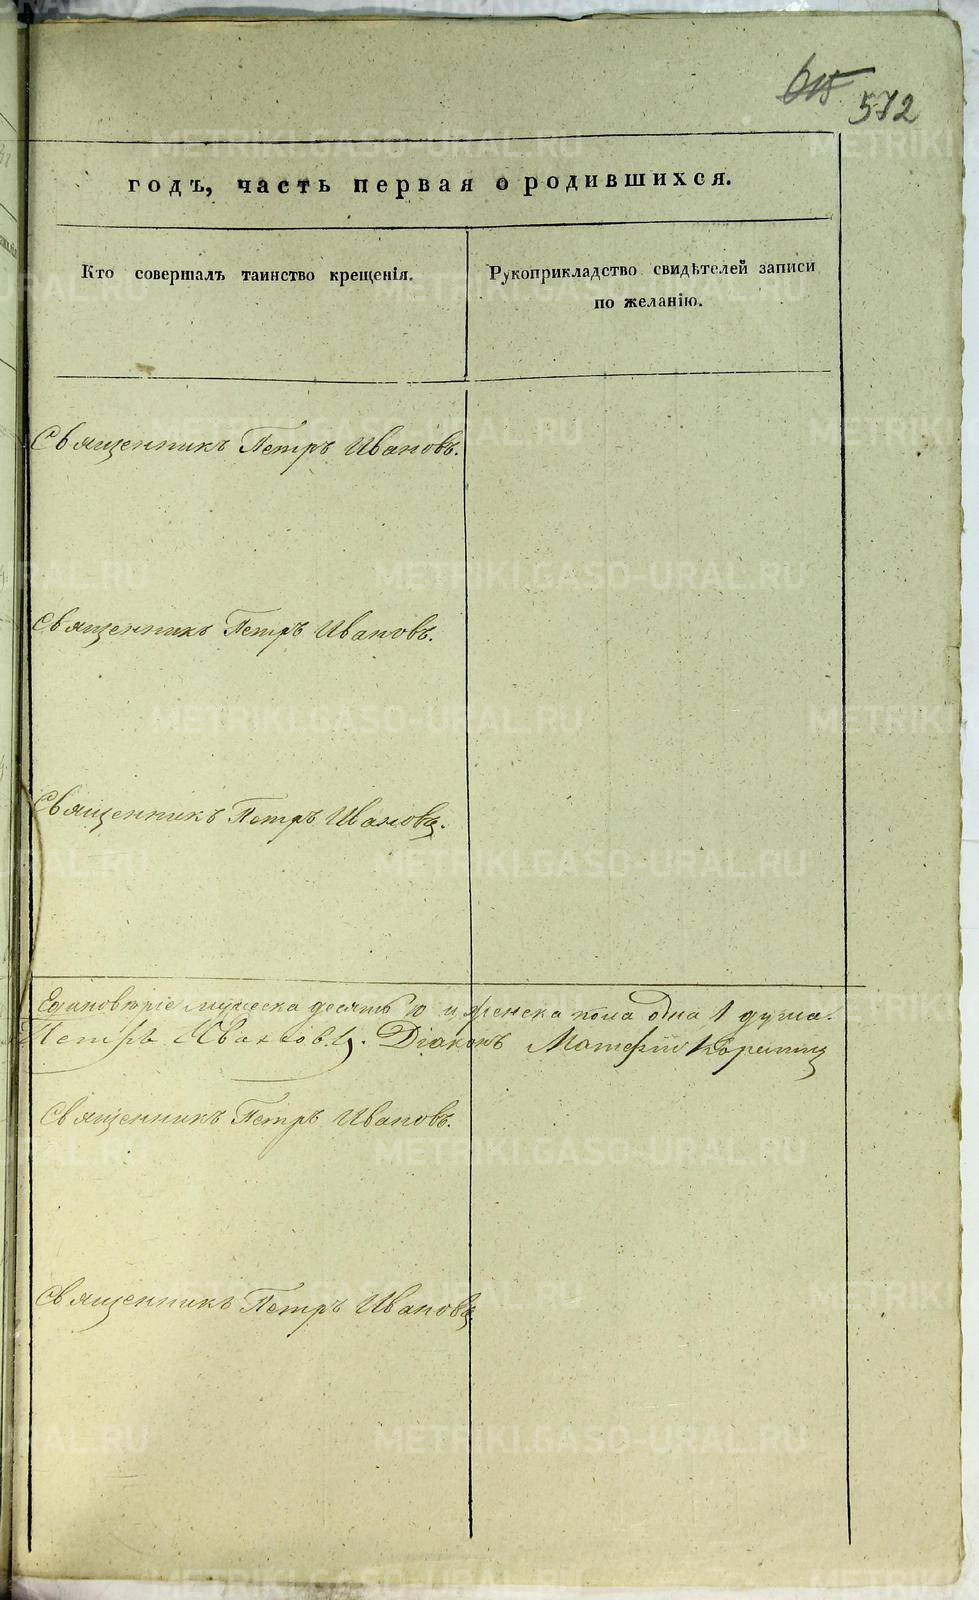 572
годъ, часть первая о родившихся.
Кто совершалъ таинство крещенія.
Рукоприкладство свидѣтелей записи
по желанію.
Священникъ Петръ Ивановъ.
Священникъ Петръ Ивановъ.
Священникъ Петръ Ивановъ.
Единовѣріе мужеска десять 10 и женска пола одна 1 душа.
Петръ Ивановъ. Діаконъ Матфій
Священникъ Петръ Ивановъ.
Священникъ Петръ Ивановъ
METRIKI.GASO-URAL.RU